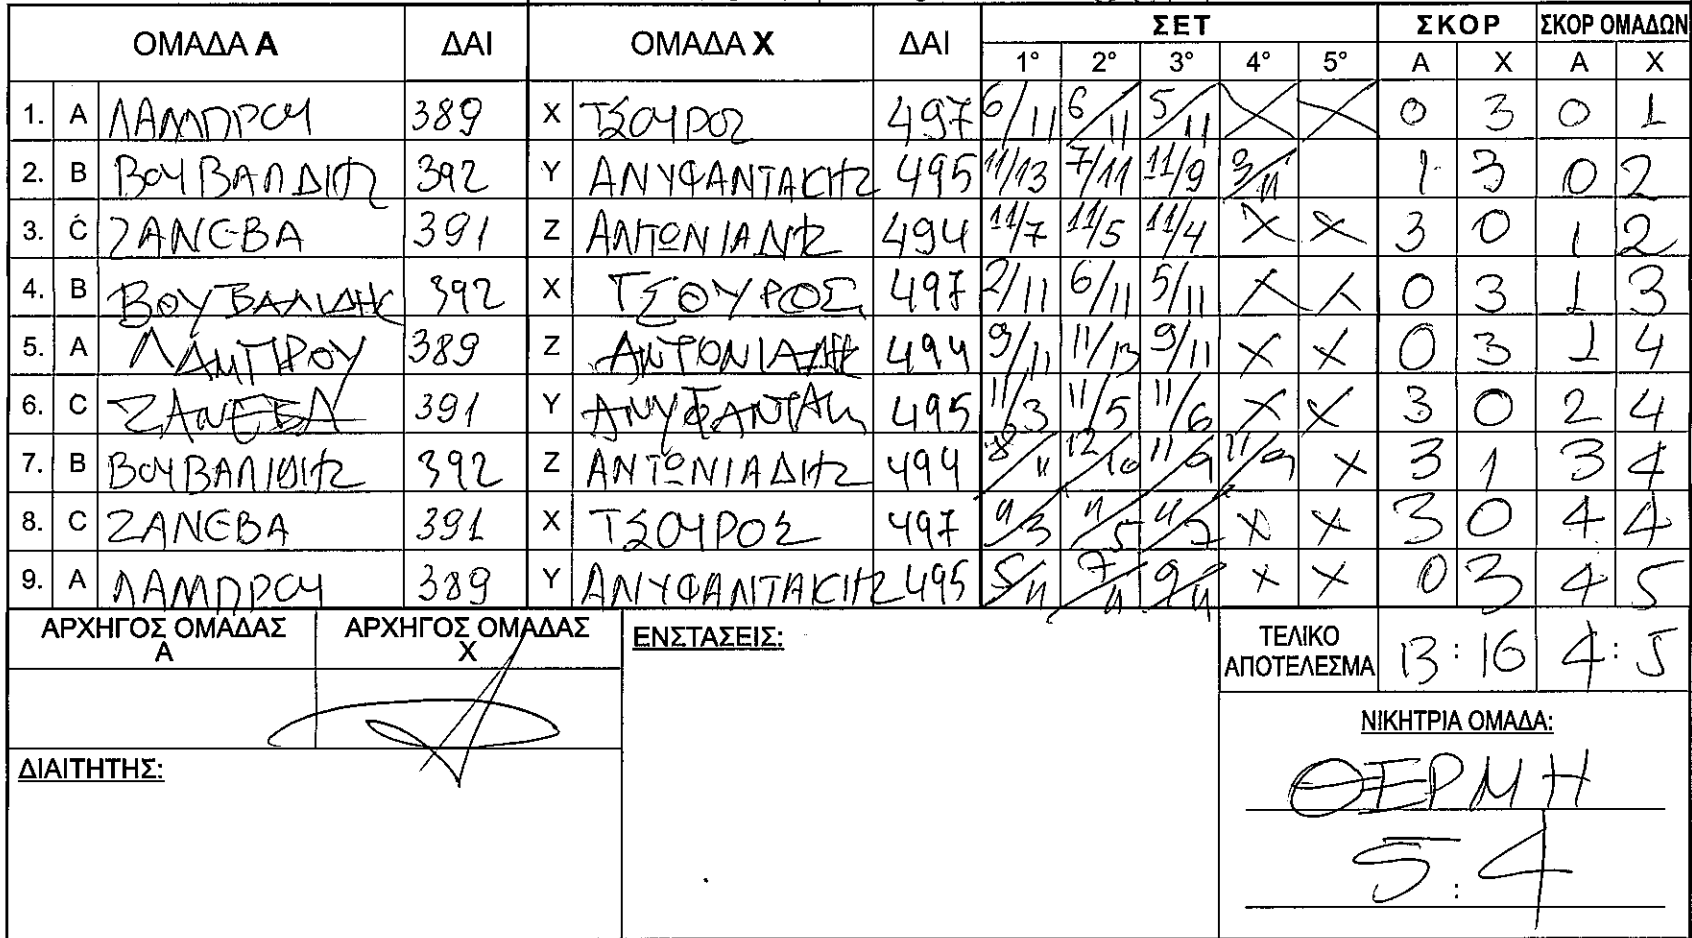 ΟΜΑΔΑ Α ΔΑΙ ΟΜΑΔΑ Χ ΔΑΙ ΣΕΤ ΣΚΟΡ ΣΚΟΡ ΟΜΑΔΩΝ
1° 2° 3° 4° 5° Α Χ Α Χ
1. A ΛΑΜΠΡΟΥ 389 X ΤΣΟΥΡΟΣ 497 6/11 6/11 5/11 X X 0 3 0 1
2. B ΒΟΥΒΑΛΔΙΗΣ 392 Y ΑΝΥΦΑΝΤΑΚΗΣ 495 11/13 7/11 11/9 3/11 1 3 0 2
3. C ΖΑΝΕΒΑ 391 Z ΑΝΤΩΝΙΑΔΗΣ 494 11/7 11/5 11/4 X X 3 0 1 2
4. B ΒΟΥΒΑΛΙΔΗΣ 392 X ΤΣΟΥΡΟΣ 497 2/11 6/11 5/11 X X 0 3 1 3
5. A ΛΑΜΠΡΟΥ 389 Z ΑΝΤΟΝΙΑΔΗ 494 9/11 11/13 9/11 X X 0 3 1 4
6. C ΖΑΝΕΒΑ 391 Y ΑΝΥΦΑΝΤΑΚ 495 11/3 11/5 11/6 X X 3 0 2 4
7. B ΒΟΥΒΑΛΙΔΗΣ 392 Z ΑΝΤΩΝΙΑΔΗΣ 494 8/11 12/10 11/9 11/9 X 3 1 3 4
8. C ΖΑΝΕΒΑ 391 X ΤΣΟΥΡΟΣ 497 11/3 11/5 11/7 X X 3 0 4 4
9. A ΛΑΜΠΡΟΥ 389 Y ΑΝΥΦΑΝΤΑΚΗΣ 495 5/11 7/11 9/11 X X 0 3 4 5
ΑΡΧΗΓΟΣ ΟΜΑΔΑΣ Α ΑΡΧΗΓΟΣ ΟΜΑΔΑΣ Χ ΕΝΣΤΑΣΕΙΣ: ΤΕΛΙΚΟ ΑΠΟΤΕΛΕΣΜΑ 13:16 4:5
ΝΙΚΗΤΡΙΑ ΟΜΑΔΑ:
ΔΙΑΙΤΗΤΗΣ:
ΘΕΡΜΗ
5:4